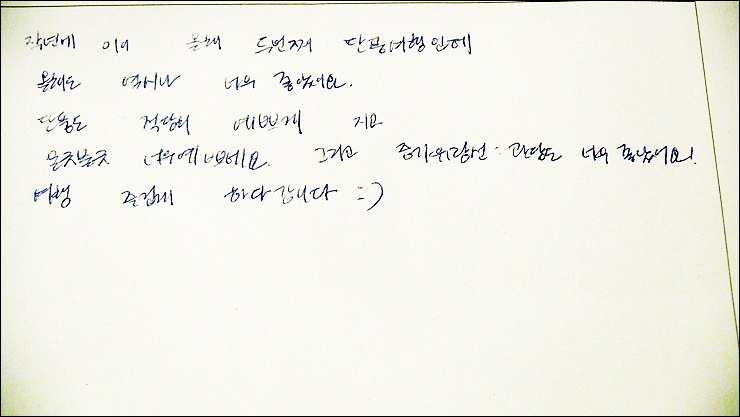 작년에 이어 올해 두번째 단풍여행인데
올해도 역시나 너무 좋았어요.
단풍도 적당히 예쁘게 지고
울긋불긋 너무예쁘네요. 그리고 관담도 너무 좋았어요!
여행 즐겁게 하다 갑니다 :)